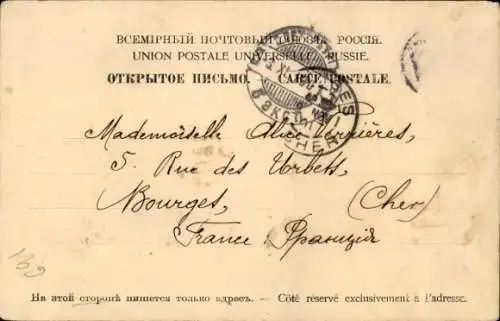 ВСЕМІРНЫЙ ПОЧТОВЫЙ СОЮЗЪ. РОССІЯ.
UNION POSTALE UNIVERSELLE. RUSSIE.
ОТКРЫТОЕ ПИСЬМО. — CARTE POSTALE.
CHER
Mademoiselle Alice Verrières,
5. Rue des Verbets,
Bourges, (Cher)
France. Франція
139
На этой сторонѣ пишется только адресъ. — Côté réservé exclusivement à l'adresse.